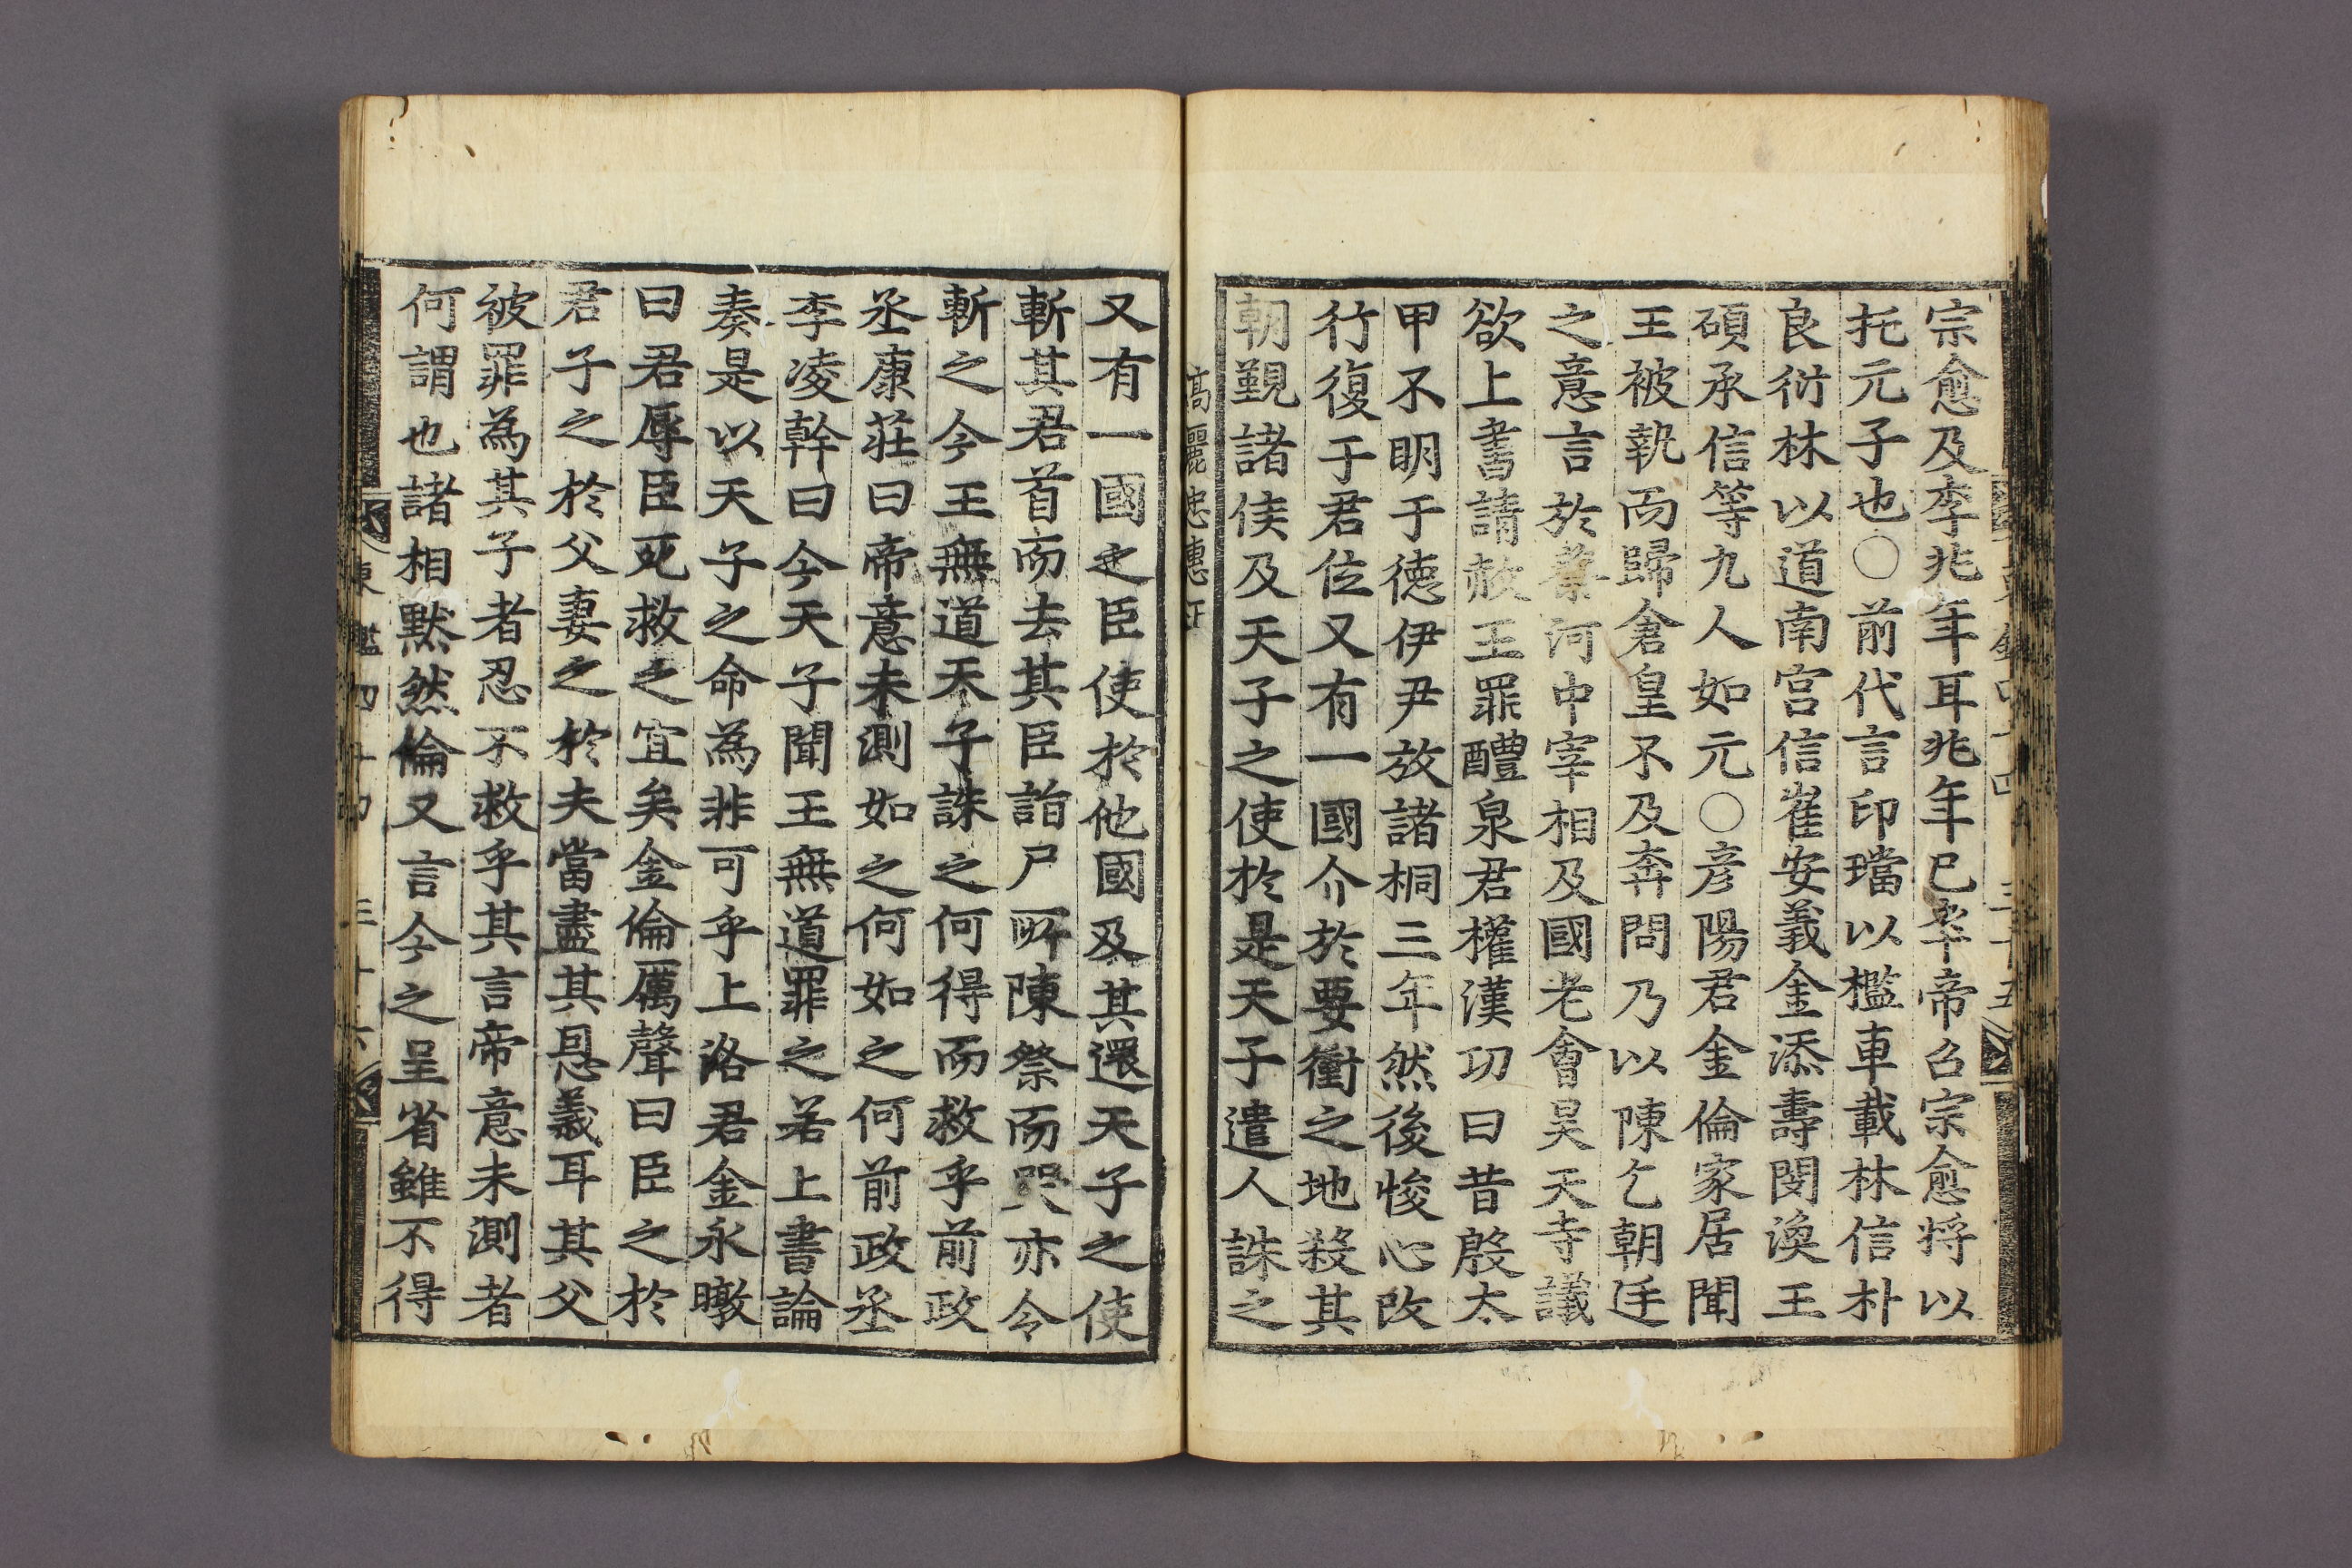 宗愈及李兆年耳兆年已卒帝召宗愈将以
托元子也○前代言印璫以檻車載林信朴
良衍林以道南宫信崔安義金添壽閔渙王
碩承信等九人如元○彦陽君金倫家居聞
王被執而歸倉皇不及奔問乃以陳乞朝廷
之意言於蔡河中宰相及國老會旻天寺議
欲上書請赦王罪醴泉君權漢功曰昔殷太
甲不明于德伊尹放諸桐三年然後悛心改
行復于君位又有一國介於要衝之地殺其
朝覲諸侯及天子之使於是天子遣人誅之
高麗忠惠王
又有一國之臣使於他國及其還天子之使
斬其君首而去其臣詣尸所陳祭而哭亦令
斬之今王無道天子誅之何得而救乎前政
丞康莊曰帝意未測如之何如之何前政丞
李凌幹曰今天子聞王無道罪之若上書論
奏是以天子之命為非可乎上洛君金永暾
曰君辱臣死救之宜矣金倫厲聲曰臣之於
君子之於父妻之於夫當盡其恩義耳其父
被罪為其子者忍不救乎其言帝意未測者
何謂也諸相黙然倫又言今之呈省雖不得